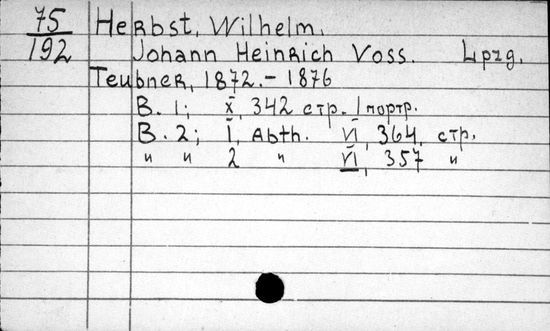 75 Herbst, Wilhelm.
192 Johann Heinrich Voss. Lpzg,
Teubner, 1872.- 1876
B. 1; X, 342 стр. 1 портр.
B. 2; I, Abth. VI, 364, стр.
" " 2 " VI, 357 "